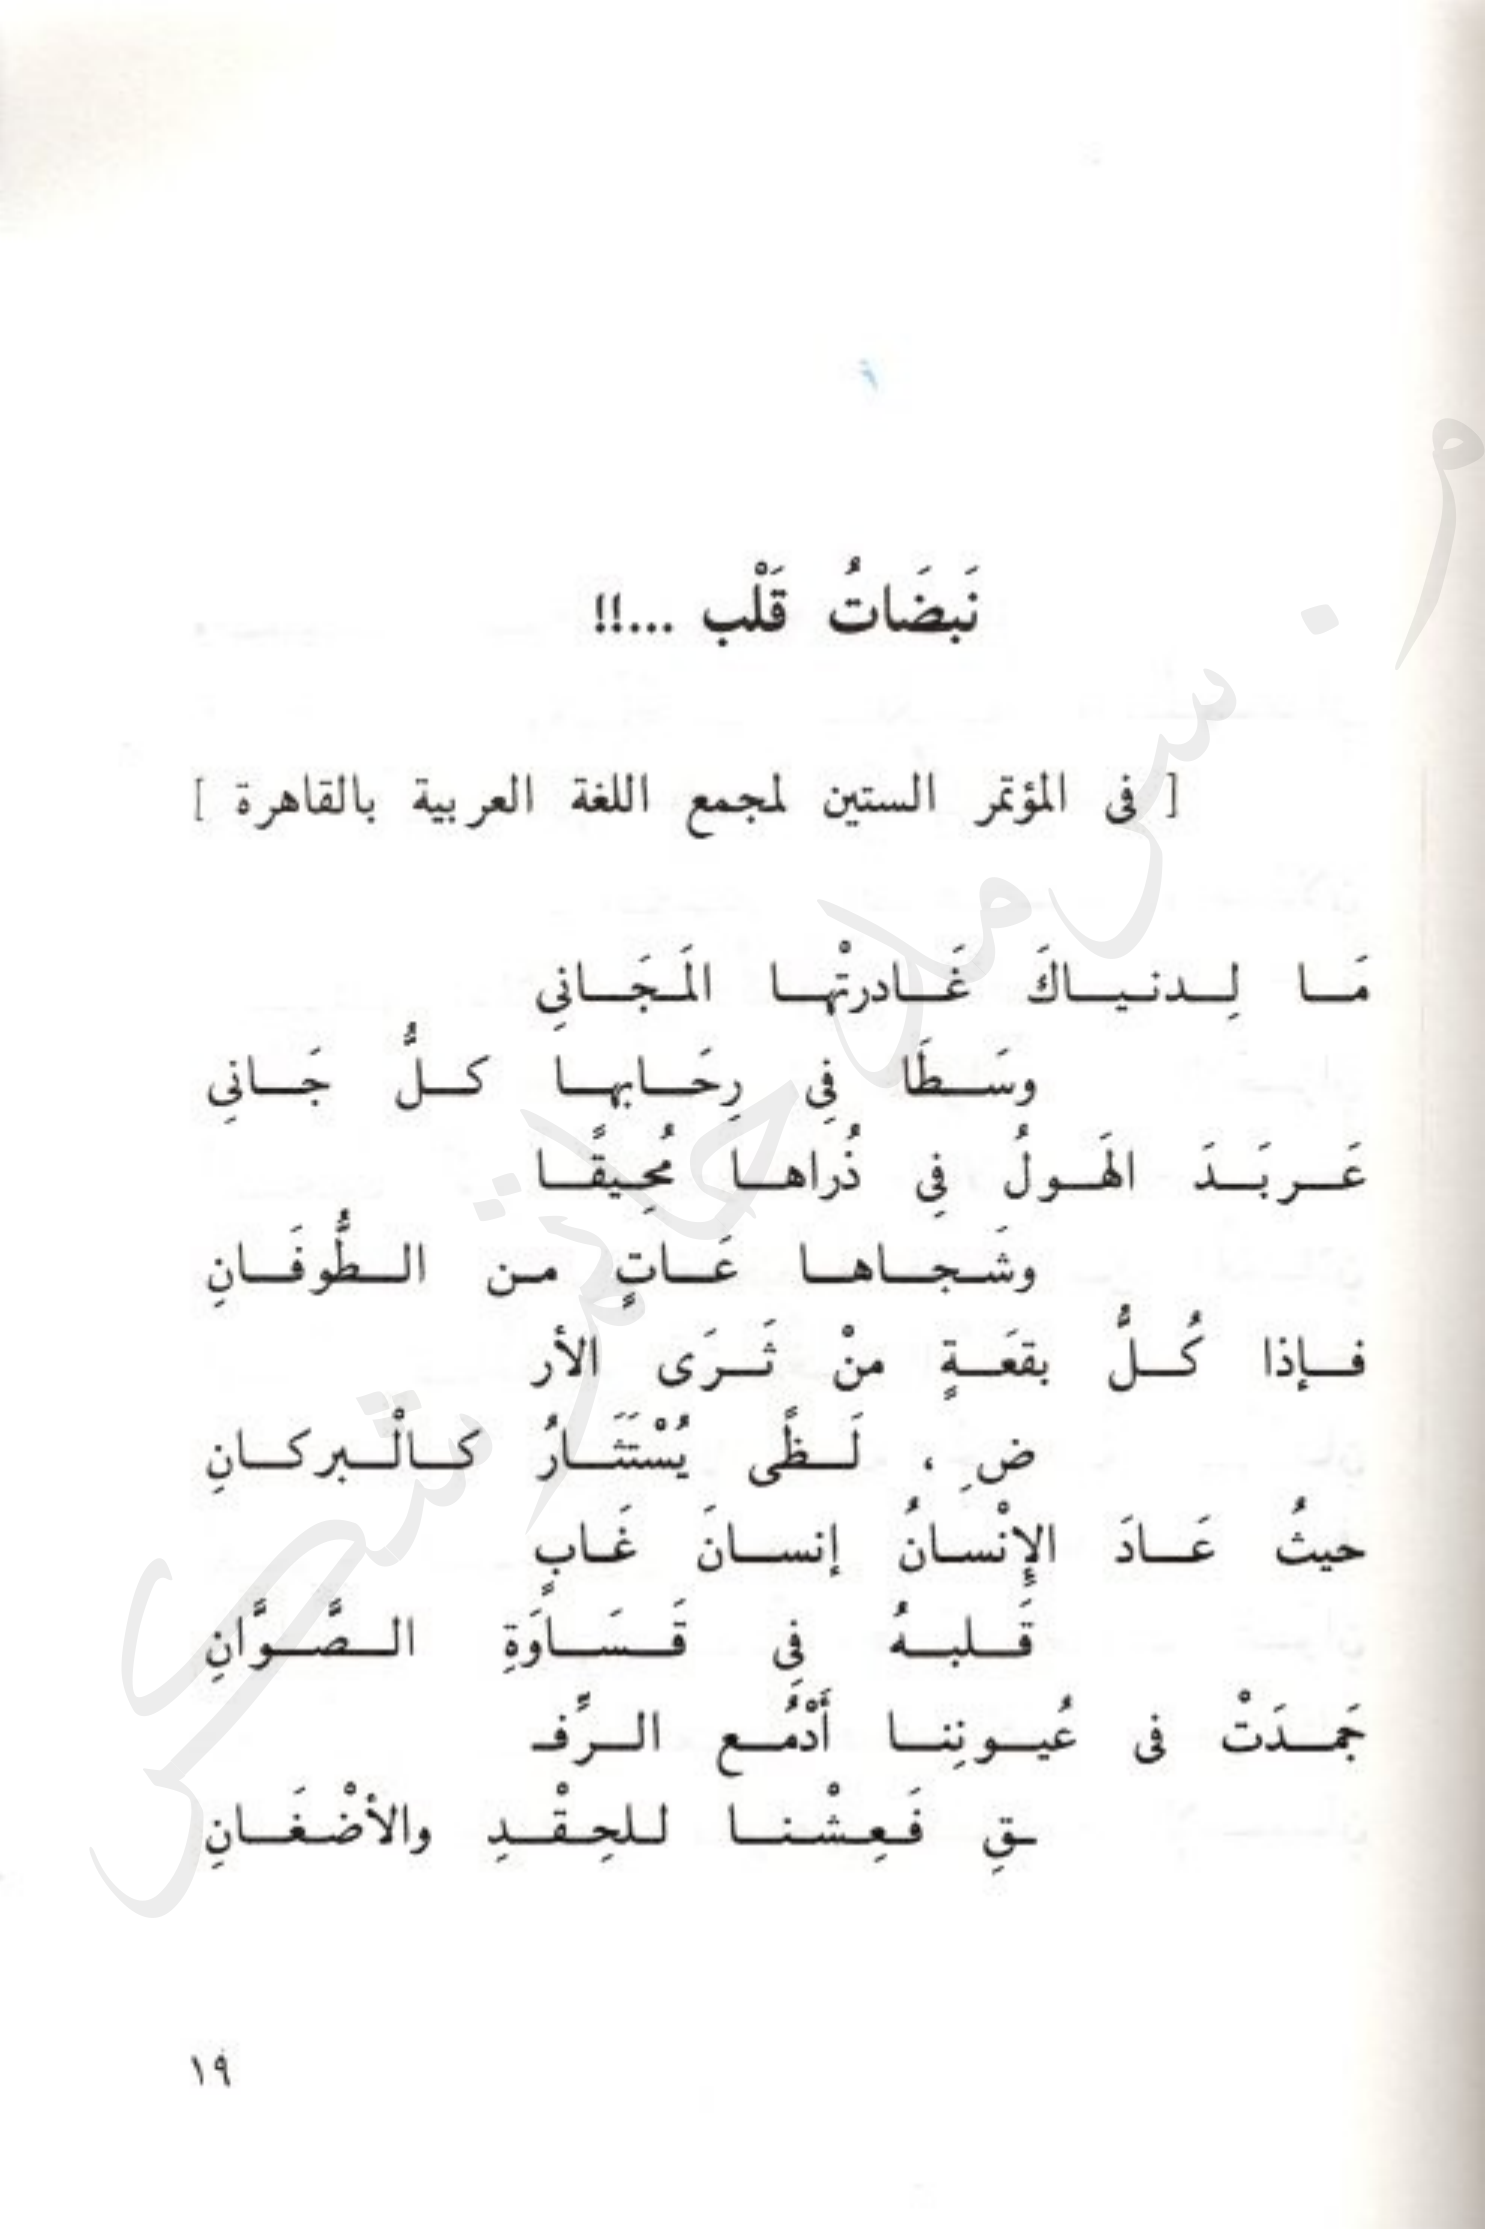 نَبضَاتُ قَلْب ...!!
[ فى المؤتمر الستين لمجمع اللغة العربية بالقاهرة ]
مَا لِدنياكَ غَادرتْها المَجَانِي
وسَطَا فِي رِحَابها كلُّ جَانِي
عَربَدَ الهَولُ فِي ذُراها مُحِيقًا
وشَجاها عَاتٍ من الطُّوفَانِ
فإذا كُلُّ بقعَةٍ منْ ثَرَى الأر
ضِ ، لَظًى يُسْتَثَارُ كالْبركانِ
حيثُ عَادَ الإِنْسانُ إنسانَ غَابٍ
قَلبهُ فِي قَسَاوَةِ الصَّوَّانِ
جَمدَتْ فى عُيونِنا أَدْمُع الرِّفـ
ـقِ فَعِشْنا للحِقْدِ والأضْغَانِ
١٩